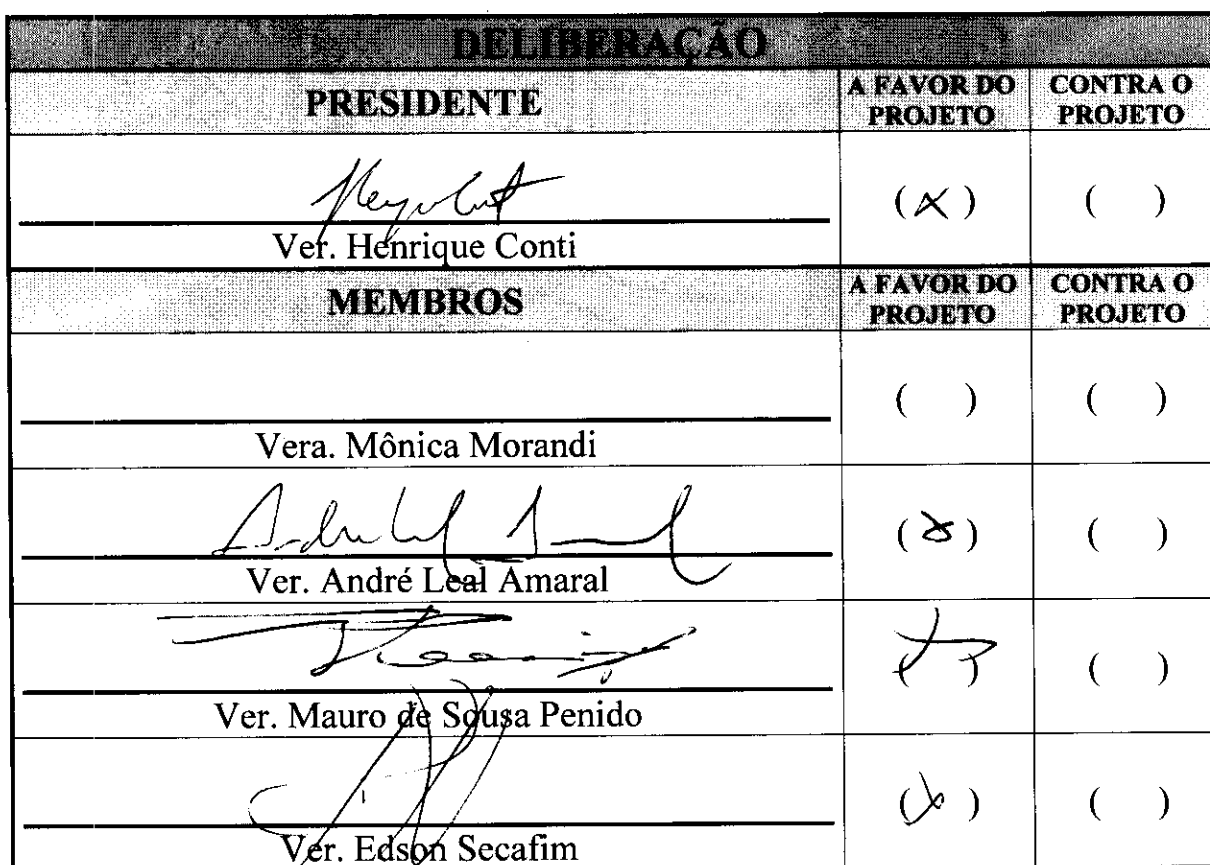 DELIBERAÇÃO
PRESIDENTE A FAVOR DO PROJETO CONTRA O PROJETO
(X) ( )
Ver. Henrique Conti
MEMBROS A FAVOR DO PROJETO CONTRA O PROJETO
( ) ( )
Vera. Mônica Morandi
(X) ( )
Ver. André Leal Amaral
(X) ( )
Ver. Mauro de Sousa Penido
(X) ( )
Ver. Edson Secafim